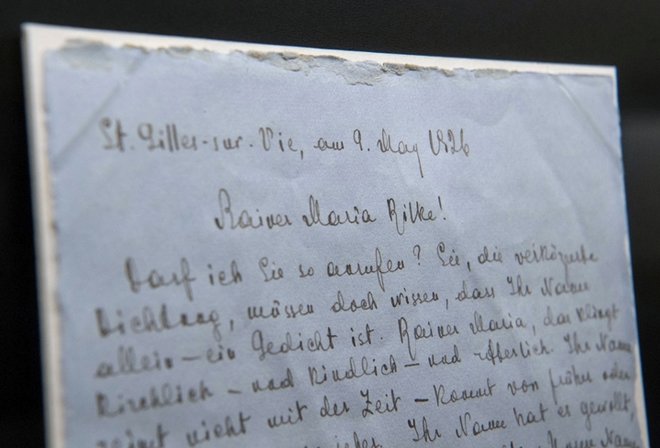 St. Gilles-sur-Vie, am 9. May 1926
Rainer Maria Rilke!
Darf ich Sie so anrufen? Sie, die verkörperte
Dichtung, müssen doch wissen, dass Ihr Name
allein – ein Gedicht ist. Rainer Maria, das klingt
kirchlich – und kindlich – und ritterlich. Ihr Name
reimt nicht mit der Zeit – kommt von früher oder
Ihr Name hat es gewollt,
Name